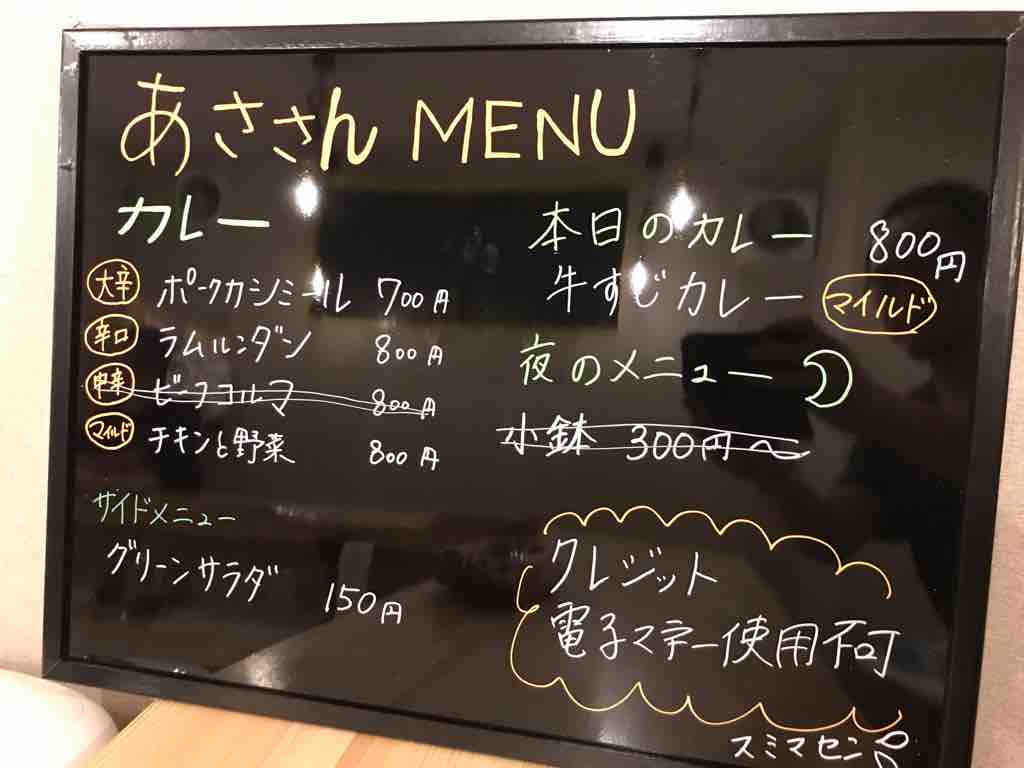 あささん MENU
カレー
大辛 ポークカシミール 700円
辛口 ラムルンダン 800円
中辛 ビーフコルマ 800円
マイルド チキンと野菜 800円
サイドメニュー
グリーンサラダ 150円
本日のカレー 800円
牛すじカレー マイルド
夜のメニュー
小鉢 300円〜
クレジット
電子マネー使用不可
スミマセン